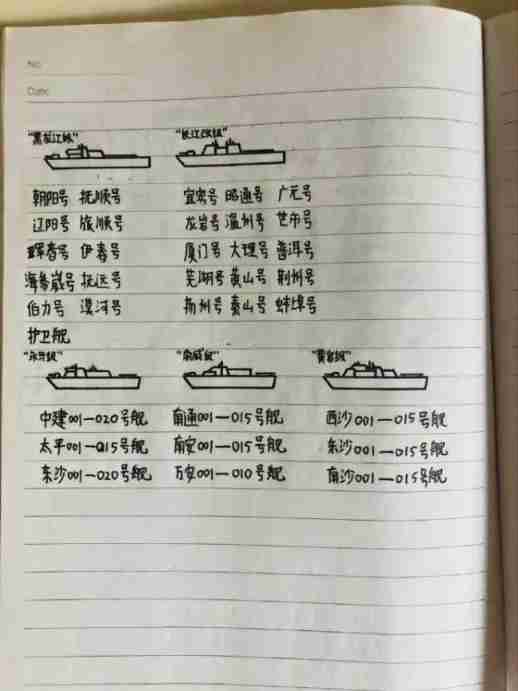 No:
Date:
"黑龙江级" "长江改级"
朝阳号 抚顺号 宜宾号 昭通号 广元号
辽阳号 旅顺号 龙岩号 温州号 芒市号
珲春号 伊春号 厦门号 大理号 普洱号
海参崴号 抚远号 芜湖号 黄山号 荆州号
伯力号 漠河号 扬州号 泰山号 蚌埠号
护卫舰
"永宁级" "南威级" "黄岩级"
中建001—020号舰 南通001—015号舰 西沙001—015号舰
太平001—015号舰 南安001—015号舰 东沙001—015号舰
东沙001—020号舰 万安001—010号舰 南沙001—015号舰